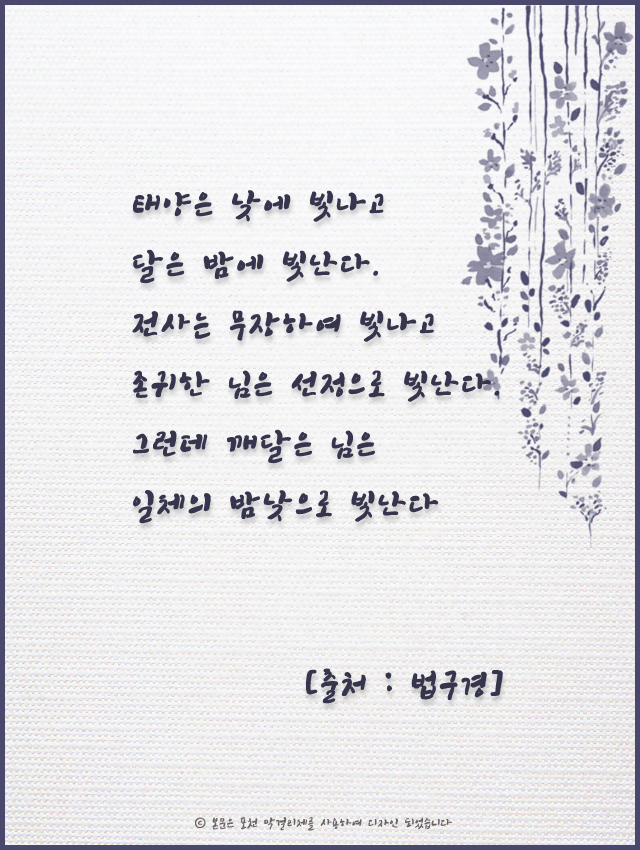 태양은 낮에 빛나고
달은 밤에 빛난다.
전사는 무장하여 빛나고
존귀한 님은 선정으로 빛난다.
그런데 깨달은 님은
일체의 밤낮으로 빛난다
[출처 : 법구경]
ⓒ 본문은 포천 막걸리체를 사용하여 디자인 되었습니다